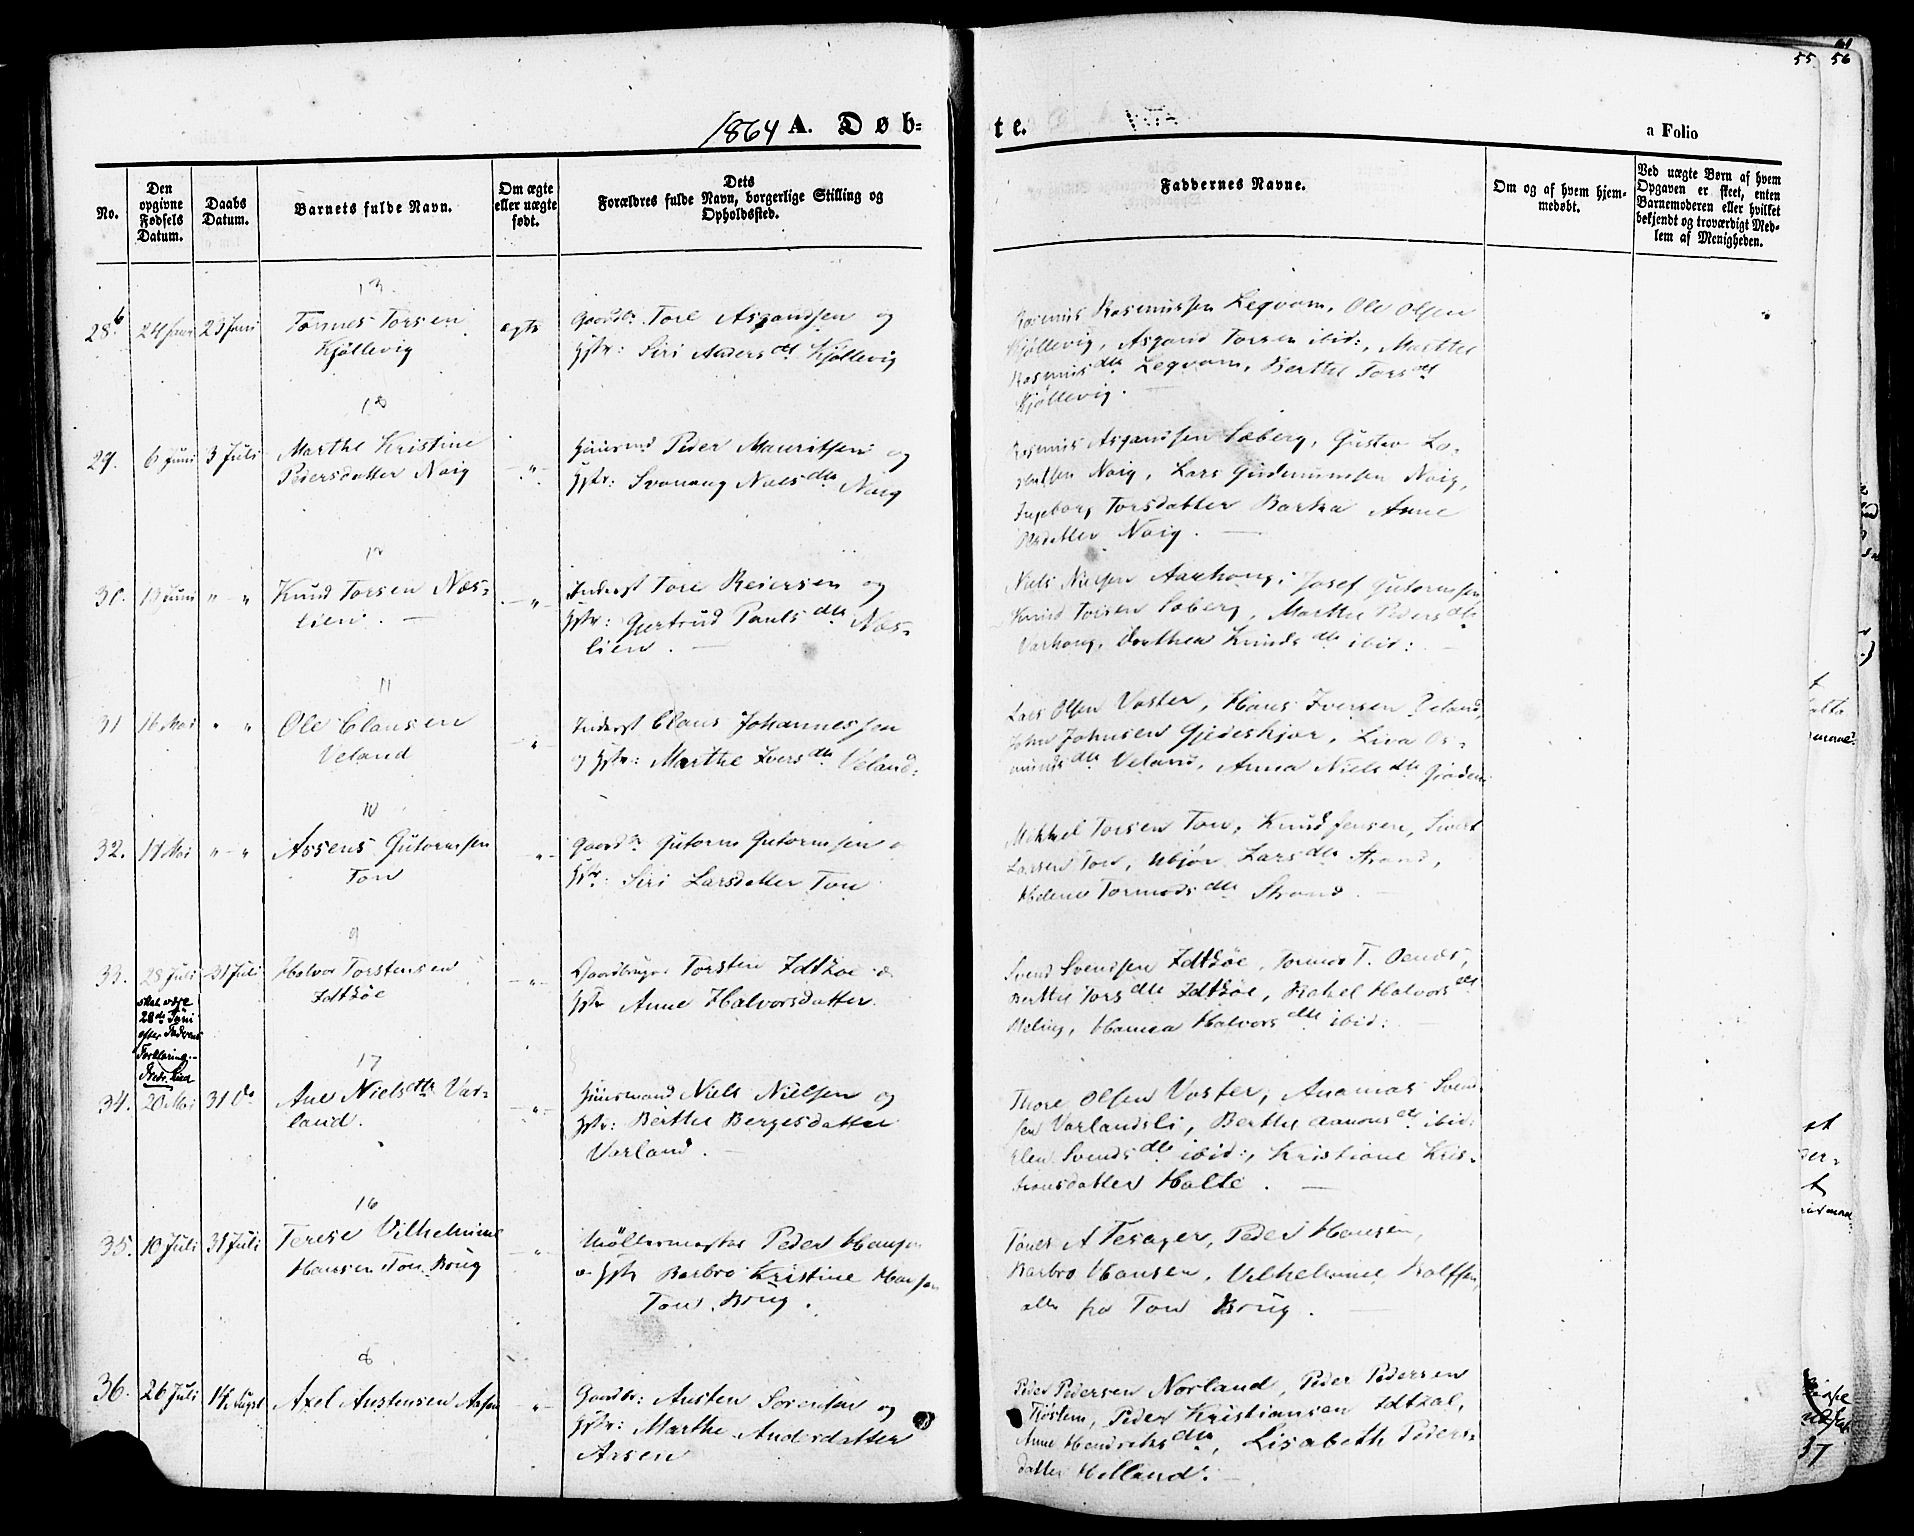 55 56
1864 A. Døb-
te.
a Folio
No.
Den opgivne Fødsels Datum.
Daabs Datum.
Barnets fulde Navn.
Om ægte eller uægte født.
Dets Forældres fulde Navn, borgerlige Stilling og Opholdssted.
Faddernes Navne.
Om og af hvem hjemmedøbt.
Ved uægte Børn af hvem Opgaven er skeet, enten Barnemoderen eller hvilket bekjendt og troværdigt Medlem af Menigheden.
13.
28 b
23 Juni
Tønnes Torsen
Kjøllevig
ægte
Gaardbr Tore Asgautsen og
Hstr: Siri Anders dtr Kjøllevig
Rasmus Rasmussen Leqvam, Ole Olsen
Kjøllevig, Asgaut Torsen ibid:, Marthe
Rasmus dtr Leqvam, Berthe Tors dtr
Kjøllevig.
18
29.
6 Juni
3 Juli
Marthe Kristine
Pedersdatter Naig
Huusmd Peder Mauritsen og
Hstr: Svanaug Niels dtr Naig
Rasmus Asgautsen Soberg, Gustav La-
Naig, Lars Gudmunsen Naig,
Ingeborg Torsdatter Barka Anne
Naig.
12
30.
13 Juni
" - "
Knud Torsen Næs-
lien.
Inderst Tore Reiersen og
Hstr: Gjertrud Pauls dtr Næs-
lien.
Niels Nielsen Aarhong, Josef Gutormsen
Knud Torsen Soberg, Marthe Peders dtr
Varhong, Dorthea Knuds dtr ibid:
11
31
16 Mai
" "
Ole Clausen
Veland
Inderst Claus Johannessen
og Hstr: Marthe Ivers dtr Veland.
Lars Olsen Vaster, Hans Iversen Veland,
John Johnsen Gjedeskjær, Liva Os-
munds dtr Veland, Anna Niels dtr
10
32.
17 Mai
" - "
Assens Gutormsen
Tou
Gaardbr Gutorm Gutormsen
Hstr: Siri Larsdatter Tou
Mikkel Torsen Tou, Knud Jensen, Sivert
Larsen Tou, Lars dtr Strand,
Helene Tormods dtr Strand.
9
33.
28 Juli
31 Juli
Halvor Torstensen
Idtsøe
Gaardbruger Torsten Idtsøe
Hstr Anne Halvorsdatter.
Svend Svendsen Idtsøe, Tormod T.
Berthe Tors dtr Idtsøe, Rakel Halvors dtr
Meling, Hanna Halvors dtr ibid:
skal være
28de Juni
efter Faderens
Forklaring.
17
34.
20 Mai
31 Do
Ane Niels dtr Var-
land.
Huusmand Niels Nielsen og
Hstr: Berthe Bergesdatter
Varland.
Thore Olsen Vaster, Ananias Svend-
sen Varlandsli, Berthe Aanons dtr ibid:
Elen Svends dtr ibid:, Kristiane Kris-
tiansdatter Halle.
16
35.
10 Juli
31 Juli
Terese Vilhelmine
Hansen Tou Brug
Møllermester Peder Hansen
Hstr Barbro Kristine Hansen
Tou Brug.
Tønes A Tesager, Peder Hansen,
Barbro Hansen, Vilhelmine Rolfsen
alle fra Tou Brug.
8
36.
26 Juli
14 August
Axel Austensen Aasen
Gaardbr: Austen Sørensen og
Hstr: Marthe Andersdatter
Aasen
Peder Pedersen Norland, Peder Pedersen
Fjøslem, Peder Kristiansen Idtzal,
Anne Hendriks dtr, Lisabeth Peders-
datter Helland.
37